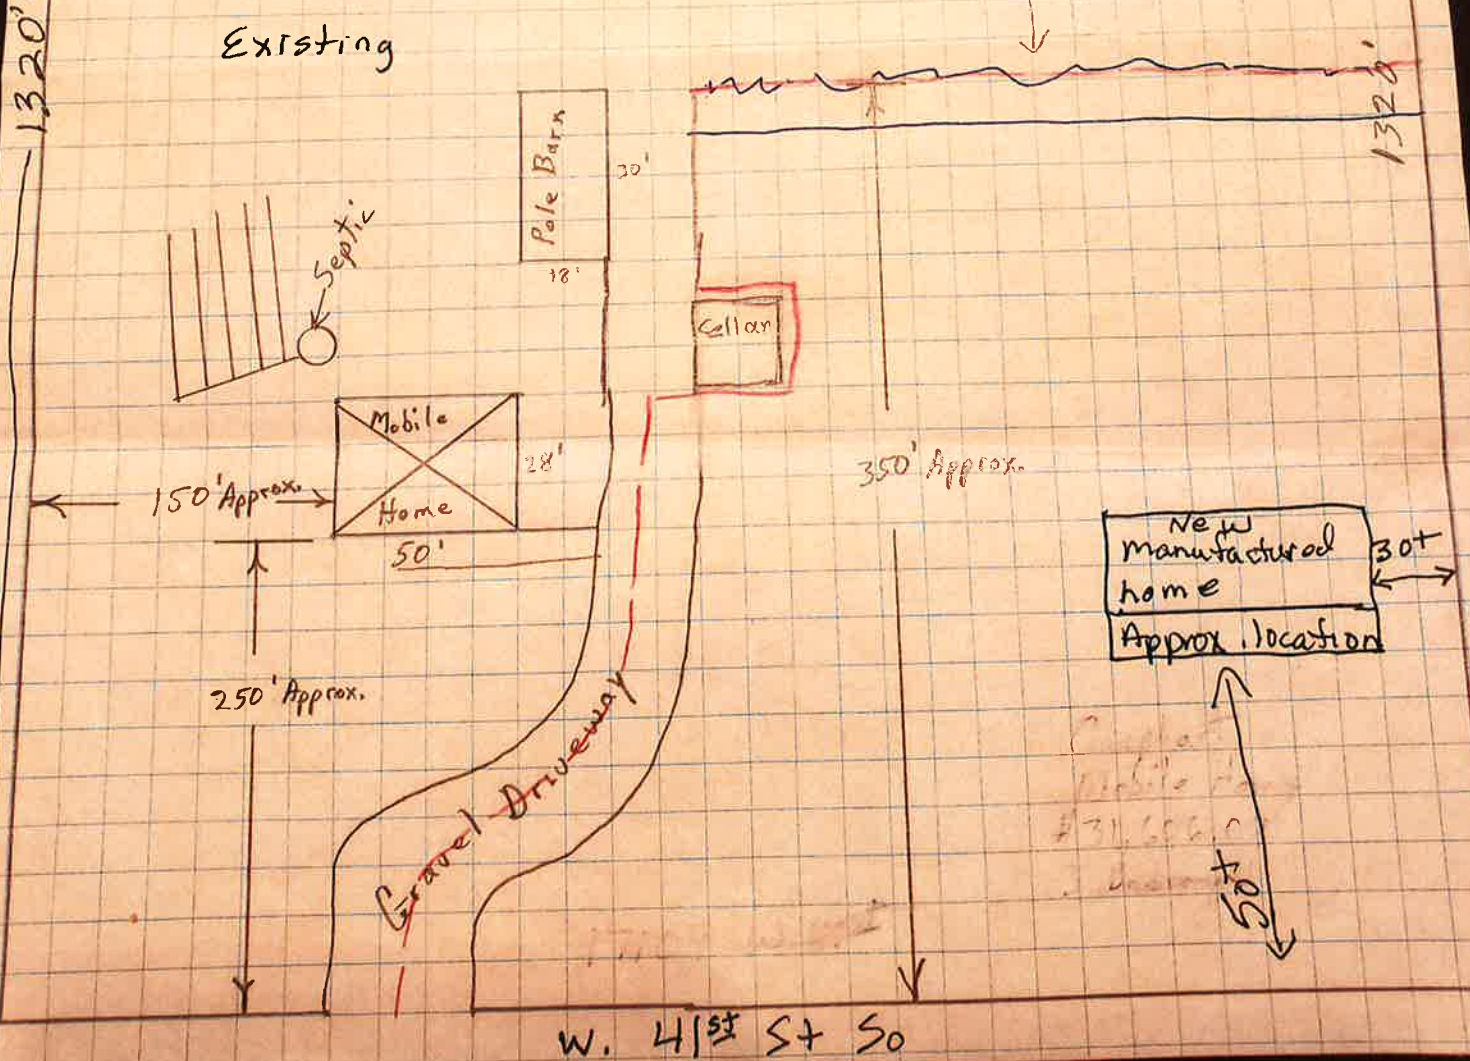 1320'
Existing
1320'
Pole Barn
30'
18'
Septic
Cellar
Mobile
Home
28'
50'
150' Approx.
350' Approx.
New
manufactured
home
Approx. location
30+
250' Approx.
Gravel Driveway
50+
W. 41st St So